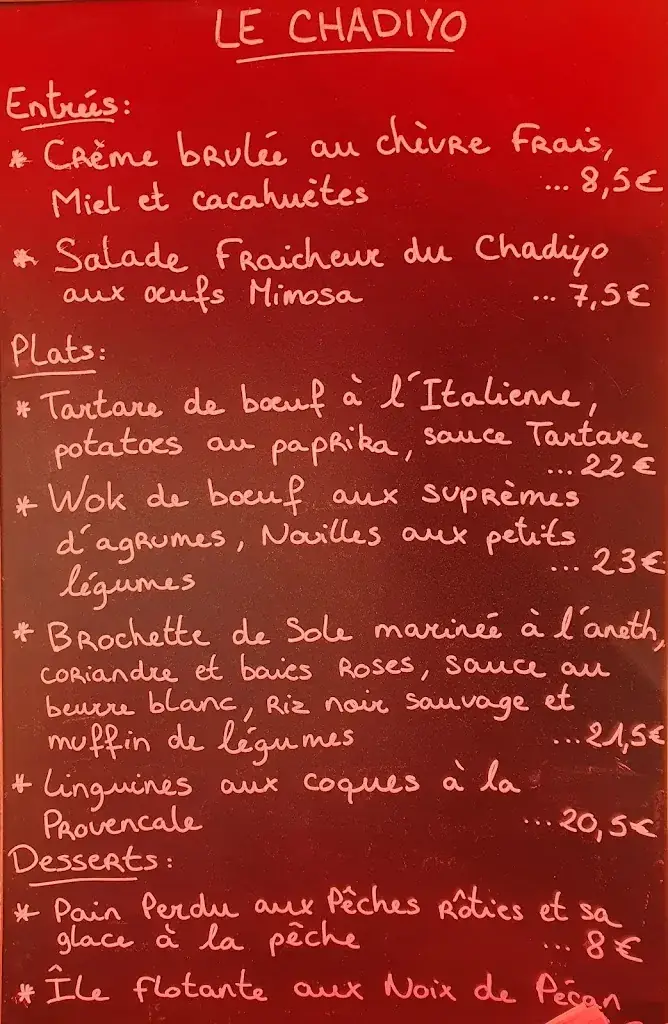 LE CHADIYO
Entrées:
* Crème brulée au chèvre Frais,
Miel et cacahuètes ... 8,5€
* Salade Fraicheur du Chadiyo
aux œufs Mimosa ... 7,5€
Plats:
* Tartare de bœuf à l'Italienne,
potatoes au paprika, sauce Tartare
... 22€
* Wok de bœuf aux suprèmes
d'agrumes, Nouilles aux petits
légumes ... 23€
* Brochette de Sole marinée à l'aneth,
coriandre et baies Roses, sauce au
beurre blanc, Riz noir sauvage et
muffin de légumes ... 21,5€
* Linguines aux coques à la
Provencale ... 20,5€
Desserts:
* Pain Perdu aux Pêches Rôties et sa
glace à la pêche ... 8€
* Île flotante aux Noix de Pécan